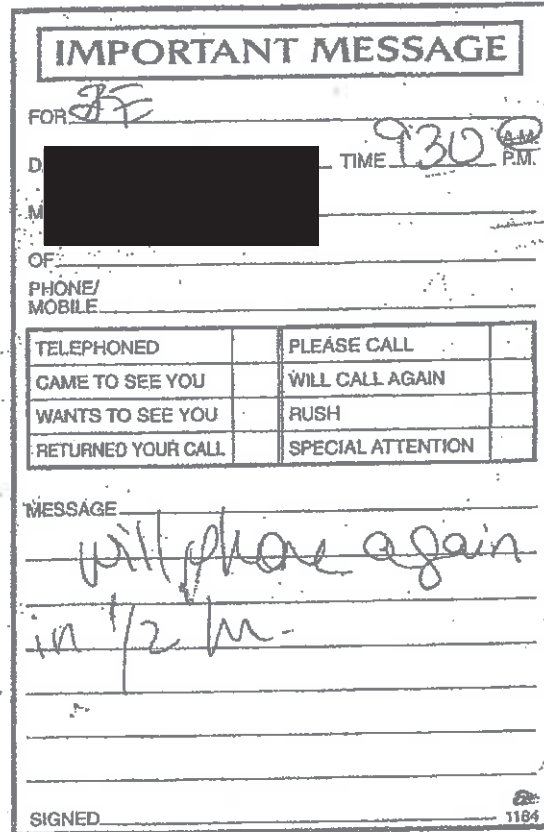 IMPORTANT MESSAGE
FOR JE
D TIME 930 A.M.
P.M.
M
OF
PHONE/
MOBILE
TELEPHONED PLEASE CALL
CAME TO SEE YOU WILL CALL AGAIN
WANTS TO SEE YOU RUSH
RETURNED YOUR CALL SPECIAL ATTENTION
MESSAGE
will phone again
in 1/2 hr-
SIGNED 1184